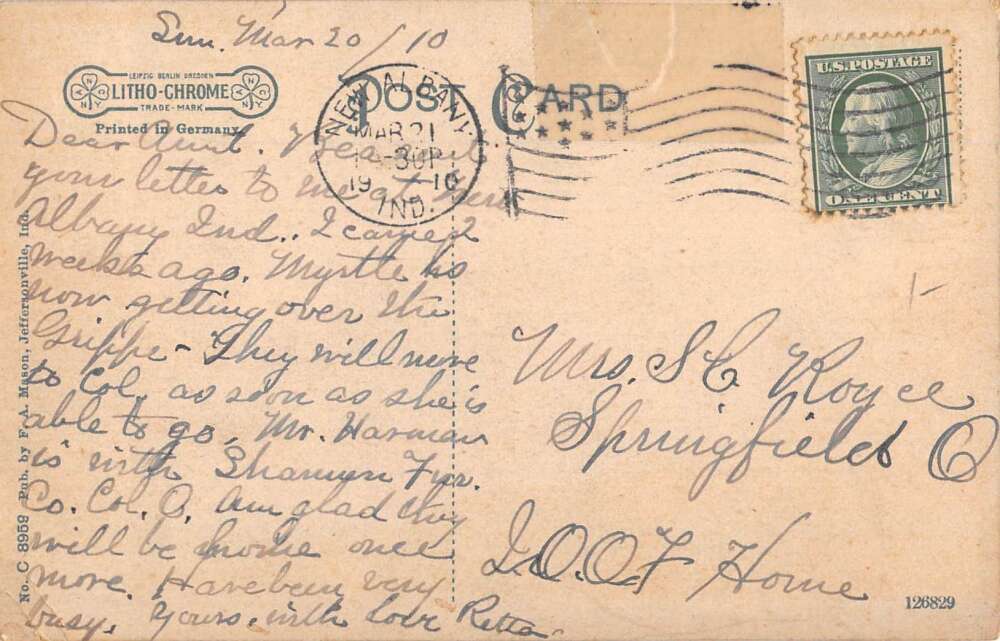 Sun. Mar 20/10
LEIPZIG BERLIN DRESDEN
LITHO-CHROME
TRADE-MARK
Printed in Germany.
POST CARD
NEW ALBANY
MAR 21
30P
1910
IND.
U.S. POSTAGE
ONE CENT
Dear Aunt.
your letter to me at New
Albany Ind.. I came 2
weeks ago. Myrtle is
now getting over the
Grippe - They will move
to Col. as soon as she is
able to go. Mr. Harman
is with Shannon Fur.
Co. Col. O. Am glad they
will be home once
more. Have been very
busy. Yours, with love Retta
Mrs. S C Royce
Springfield O
I.O.O.F Home
No. C 8959 Pub. by F. A. Mason, Jeffersonville, Ind.
126829